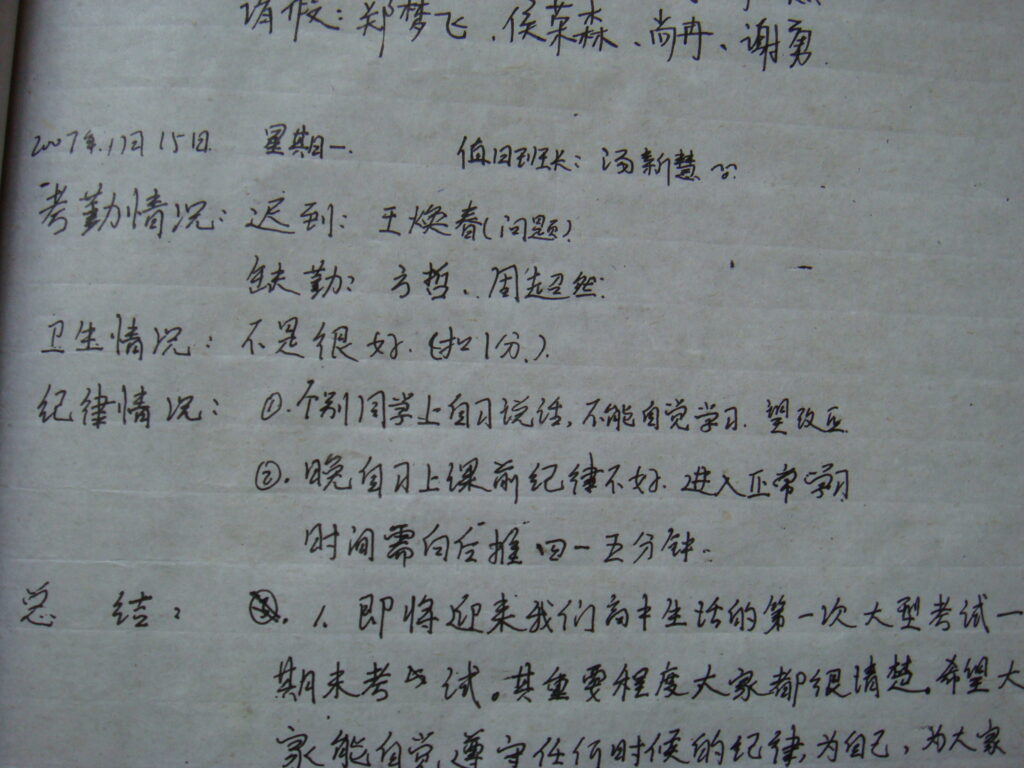 请假：郑梦飞、侯荣森、尚冉、谢勇
2007年.1月15日 星期一. 值日班长：汤新慧
考勤情况：迟到：王焕春(问题)
缺勤：方哲、周超然.
卫生情况：不是很好.(扣1分.).
纪律情况：①.个别同学上自习说话,不能自觉学习.望改正
②.晚自习上课前纪律不好.进入正常学习
时间需向后推四一五分钟.
总 结：1.即将迎来我们高中生活的第一次大型考试一
期末考试。其重要程度大家都很清楚。希望大
家能自觉遵守任何时候的纪律,为自己,为大家